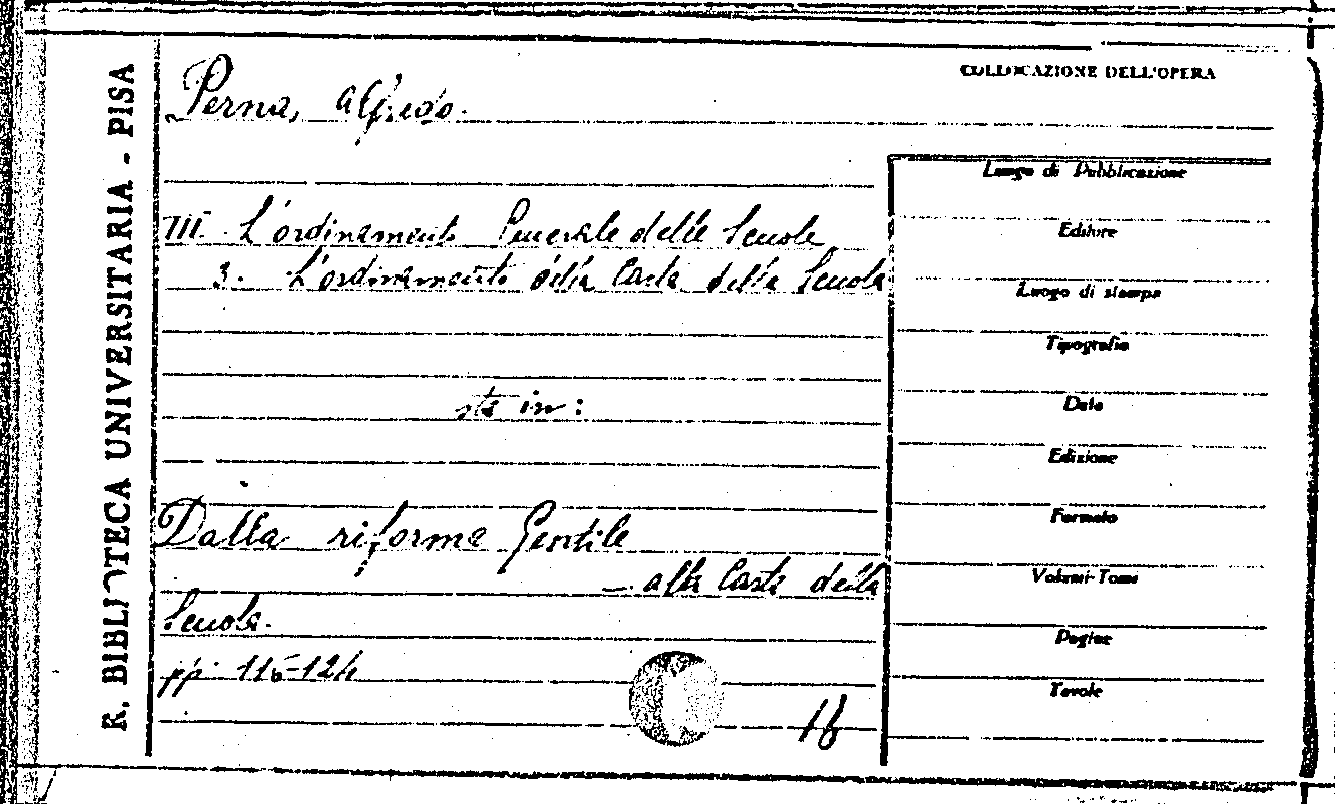 R. BIBLIOTECA UNIVERSITARIA - PISA
COLLOCAZIONE DELL'OPERA
Perna, Alfredo.
III. L'ordinamento Generale delle Scuole
3. L'ordinamento della Carta della Scuola
sta in:
Dalla riforma Gentile
- alla Carta della
Scuola.
pp. 115-124
Luogo di Pubblicazione
Editore
Luogo di stampa
Tipografia
Data
Edizione
Formato
Volumi-Tomi
Pagine
Tavole